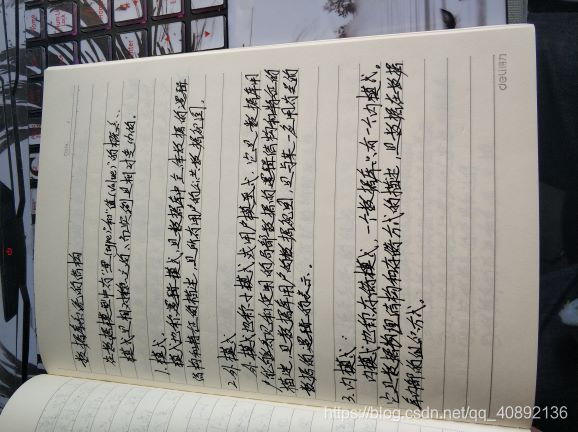 数据库系统的结构
在数据模型中有"型"(type)和"值"(value)的概念.
模式是相对稳定的,而实例是相对变动的.
1.模式:
模式也称逻辑模式,是数据库中全体数据的逻辑
结构和特征的描述,是所有用户的公共数据视图.
2.外模式
外模式也称子模式或用户模式,它是数据库用
户能够看见和使用的局部数据的逻辑结构和特征的
描述,是数据库用户的数据视图,是与某一应用有关的
数据的逻辑表示.
3.内模式:
内模式也称存储模式,一个数据库只有一个内模式.
它是数据物理结构和存储方式的描述,是数据在数据
库内部的组织方式.
deli得力
https://blog.csdn.net/qq_40892136